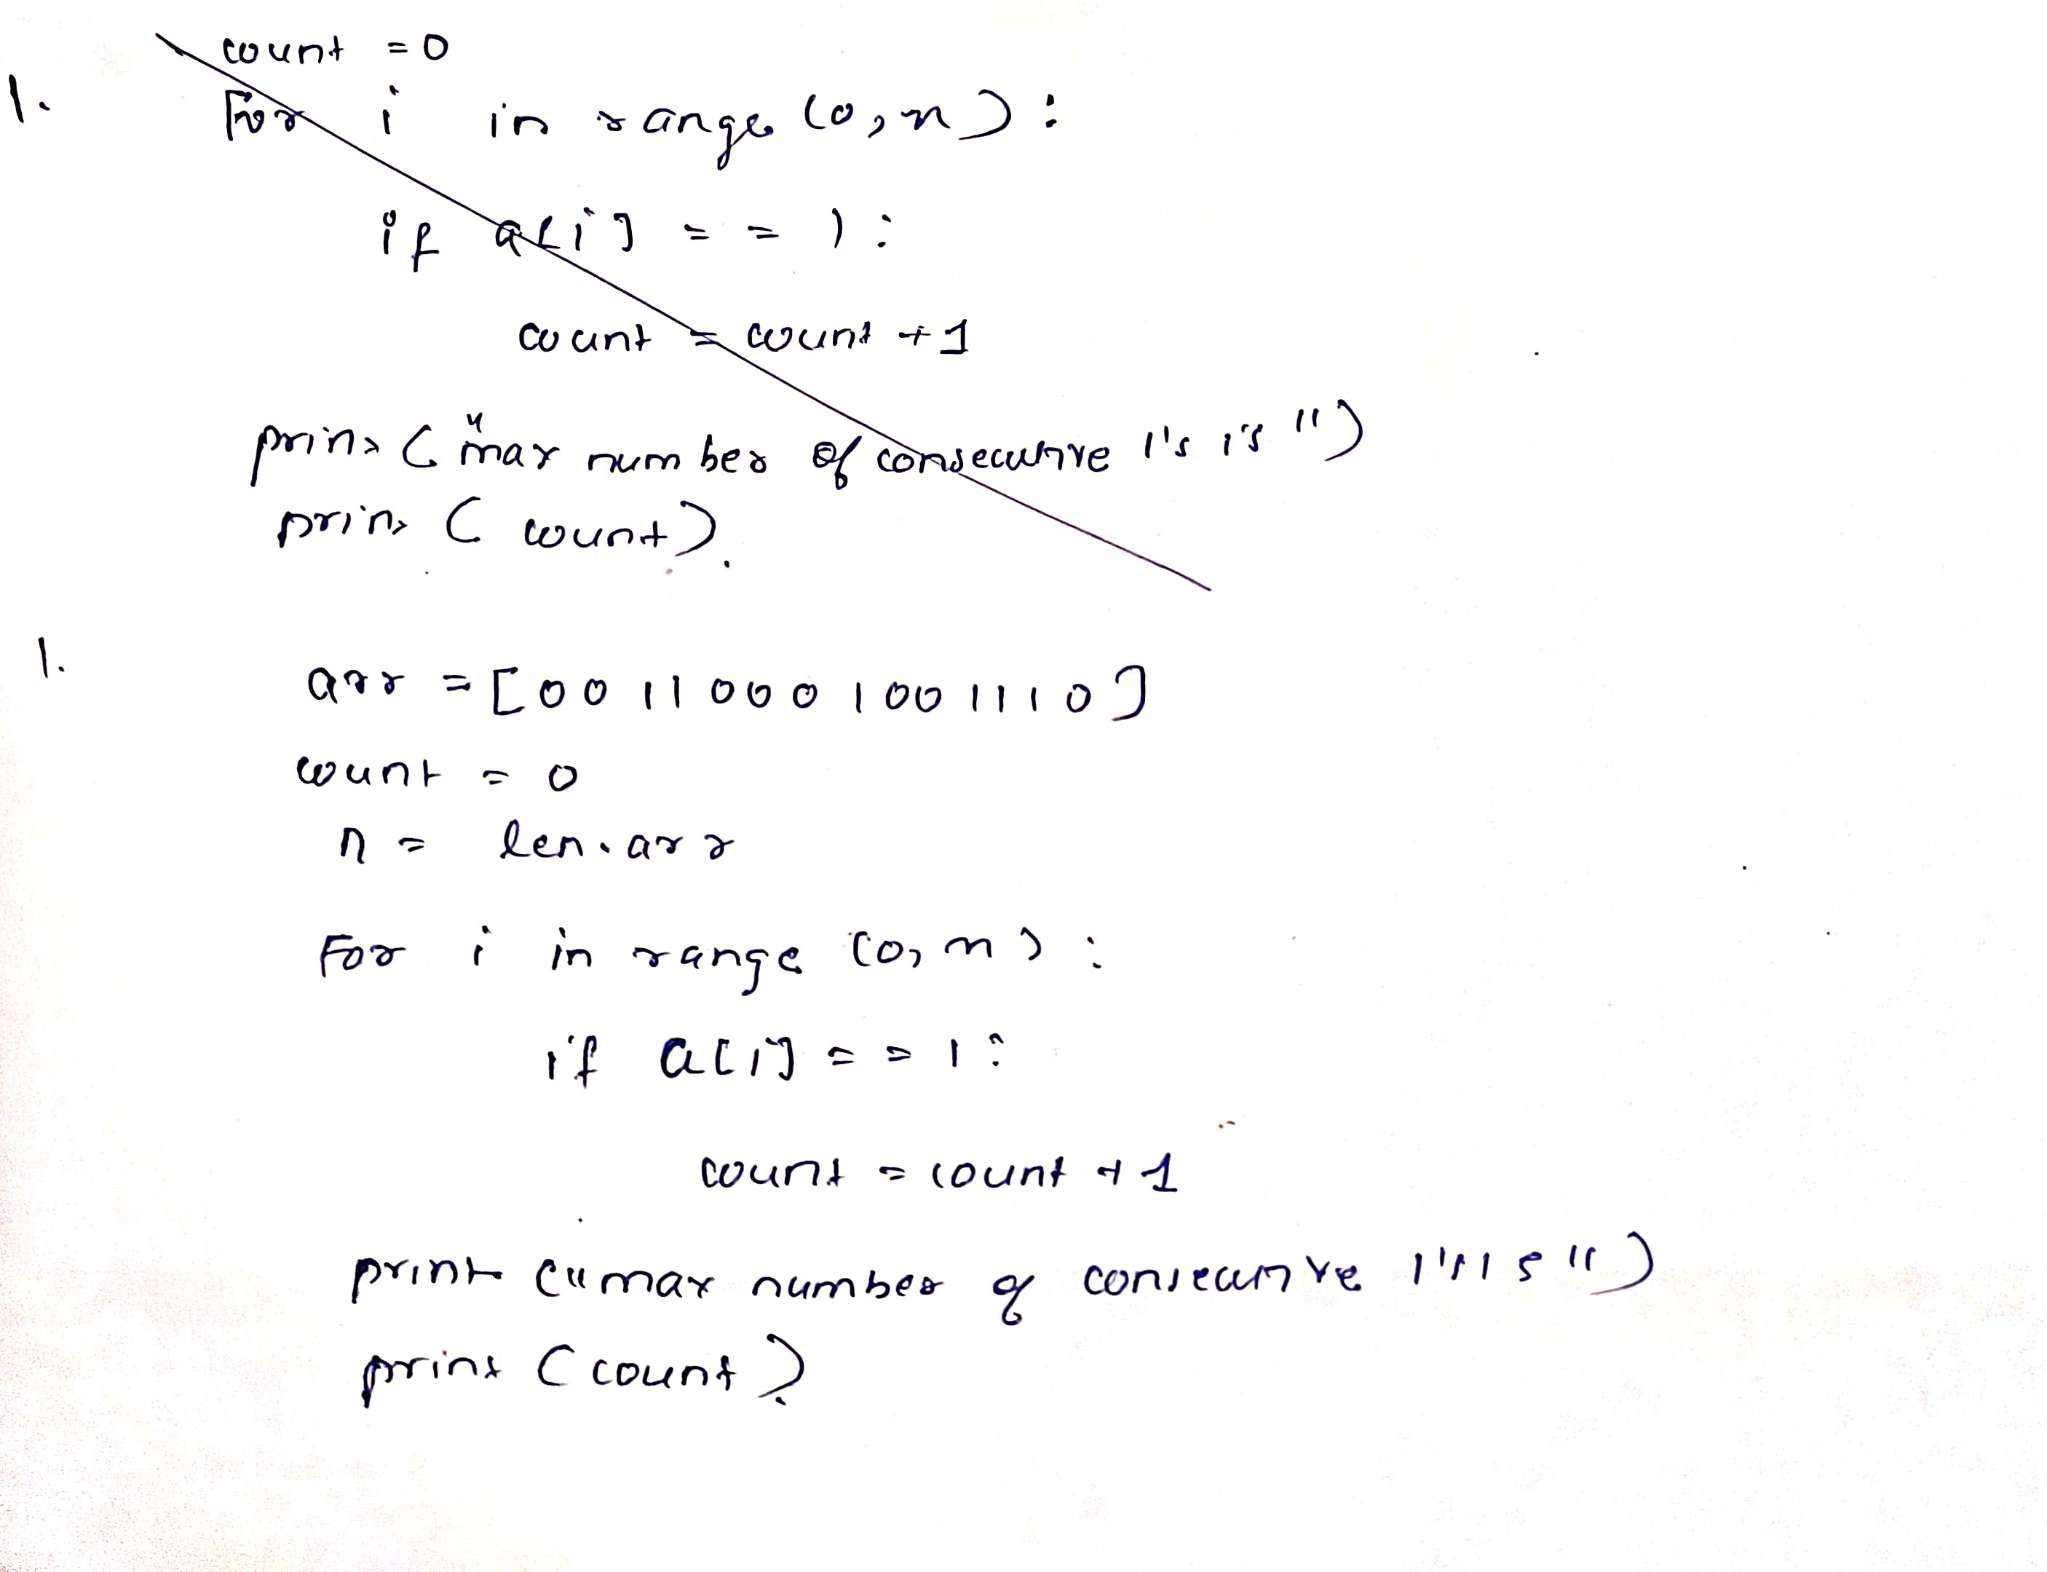 count = 0
1. For i in range (0, n) :
if a[i] = = 1 :
count = count + 1
print ( "max number of consecutive 1's is ")
print ( count ).
1. arr = [ 0 0 1 1 0 0 0 1 0 0 1 1 1 0 ]
count = 0
n = len . arr
For i in range (0, n ) :
if a[i] = = 1 :
count = count + 1
print ("max number of consecutive 1's is ")
print ( count )